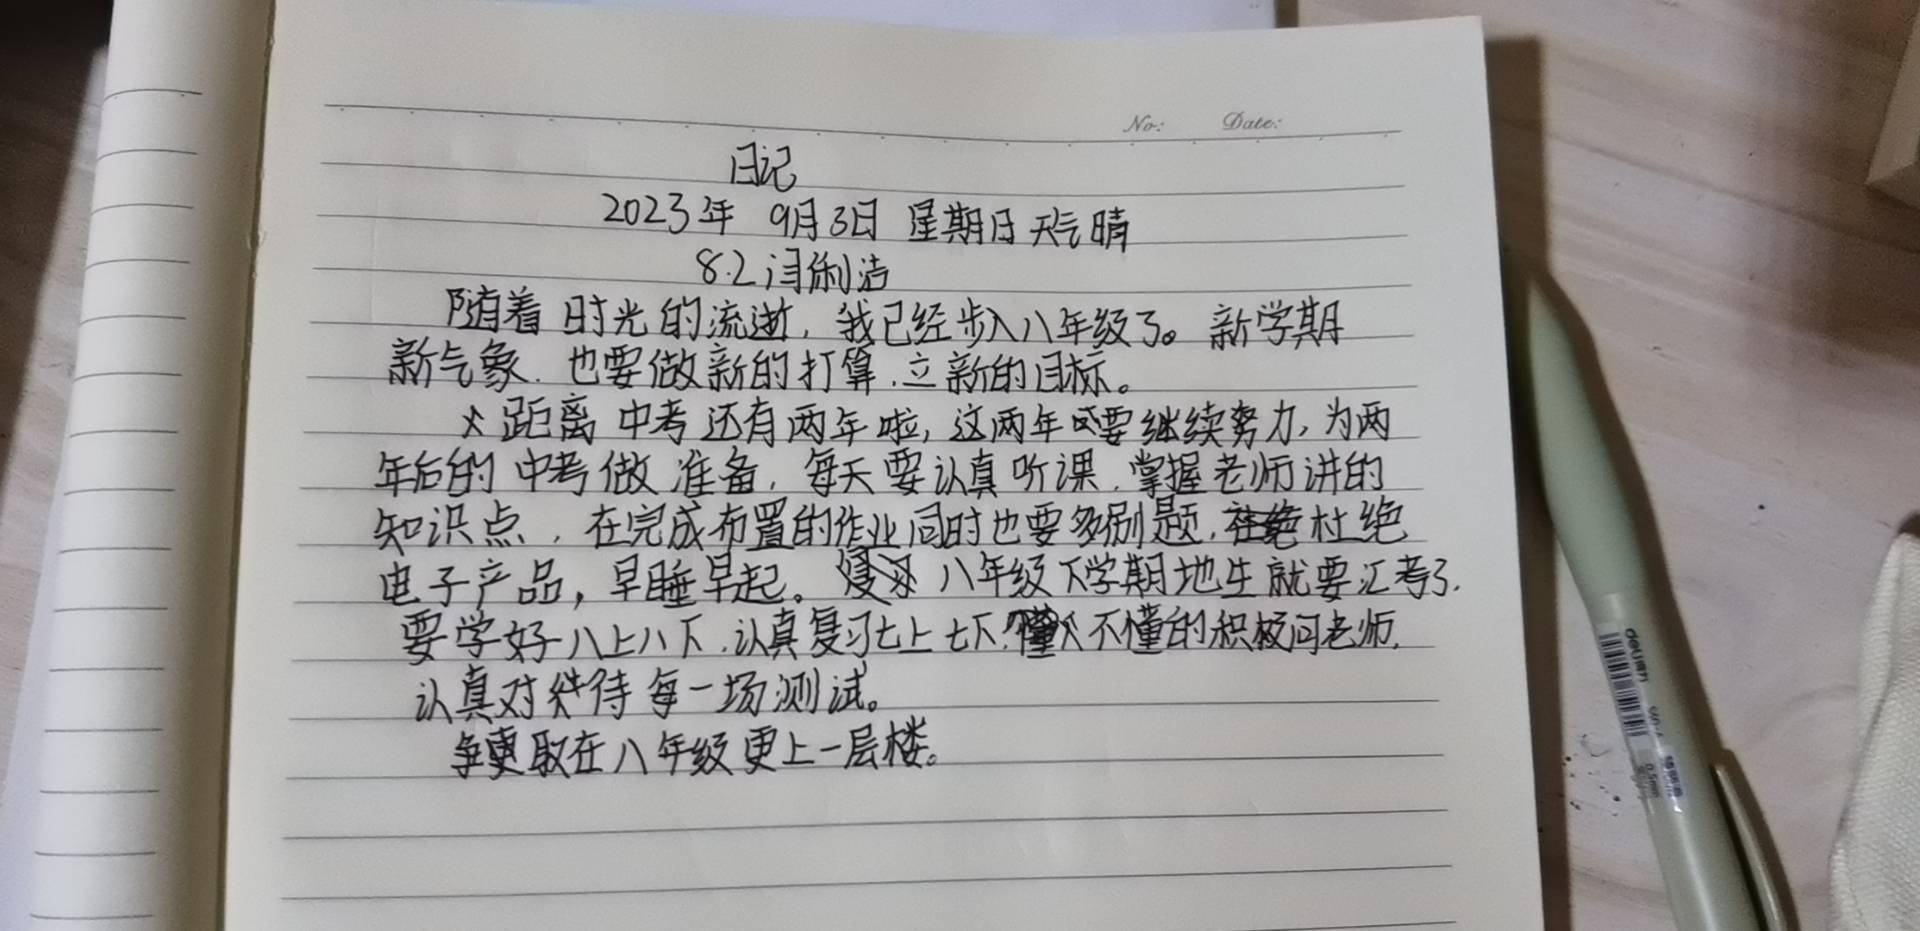 No: Date:
日记
2023年 9月3日 星期日 天气晴
8.2 闫俐洁
随着时光的流逝,我已经步入八年级了。新学期
新气象,也要做新的打算,立新的目标。
距离中考还有两年啦,这两年要继续努力,为两
年后的中考做准备,每天要认真听课,掌握老师讲的
知识点,在完成布置的作业同时也要多刷题,杜绝
电子产品,早睡早起。八年级下学期地生就要汇考了,
要学好八上八下,认真复习七上七下,不懂的积极问老师,
认真对待每一场测试。
争取在八年级更上一层楼。
deli
0.5mm